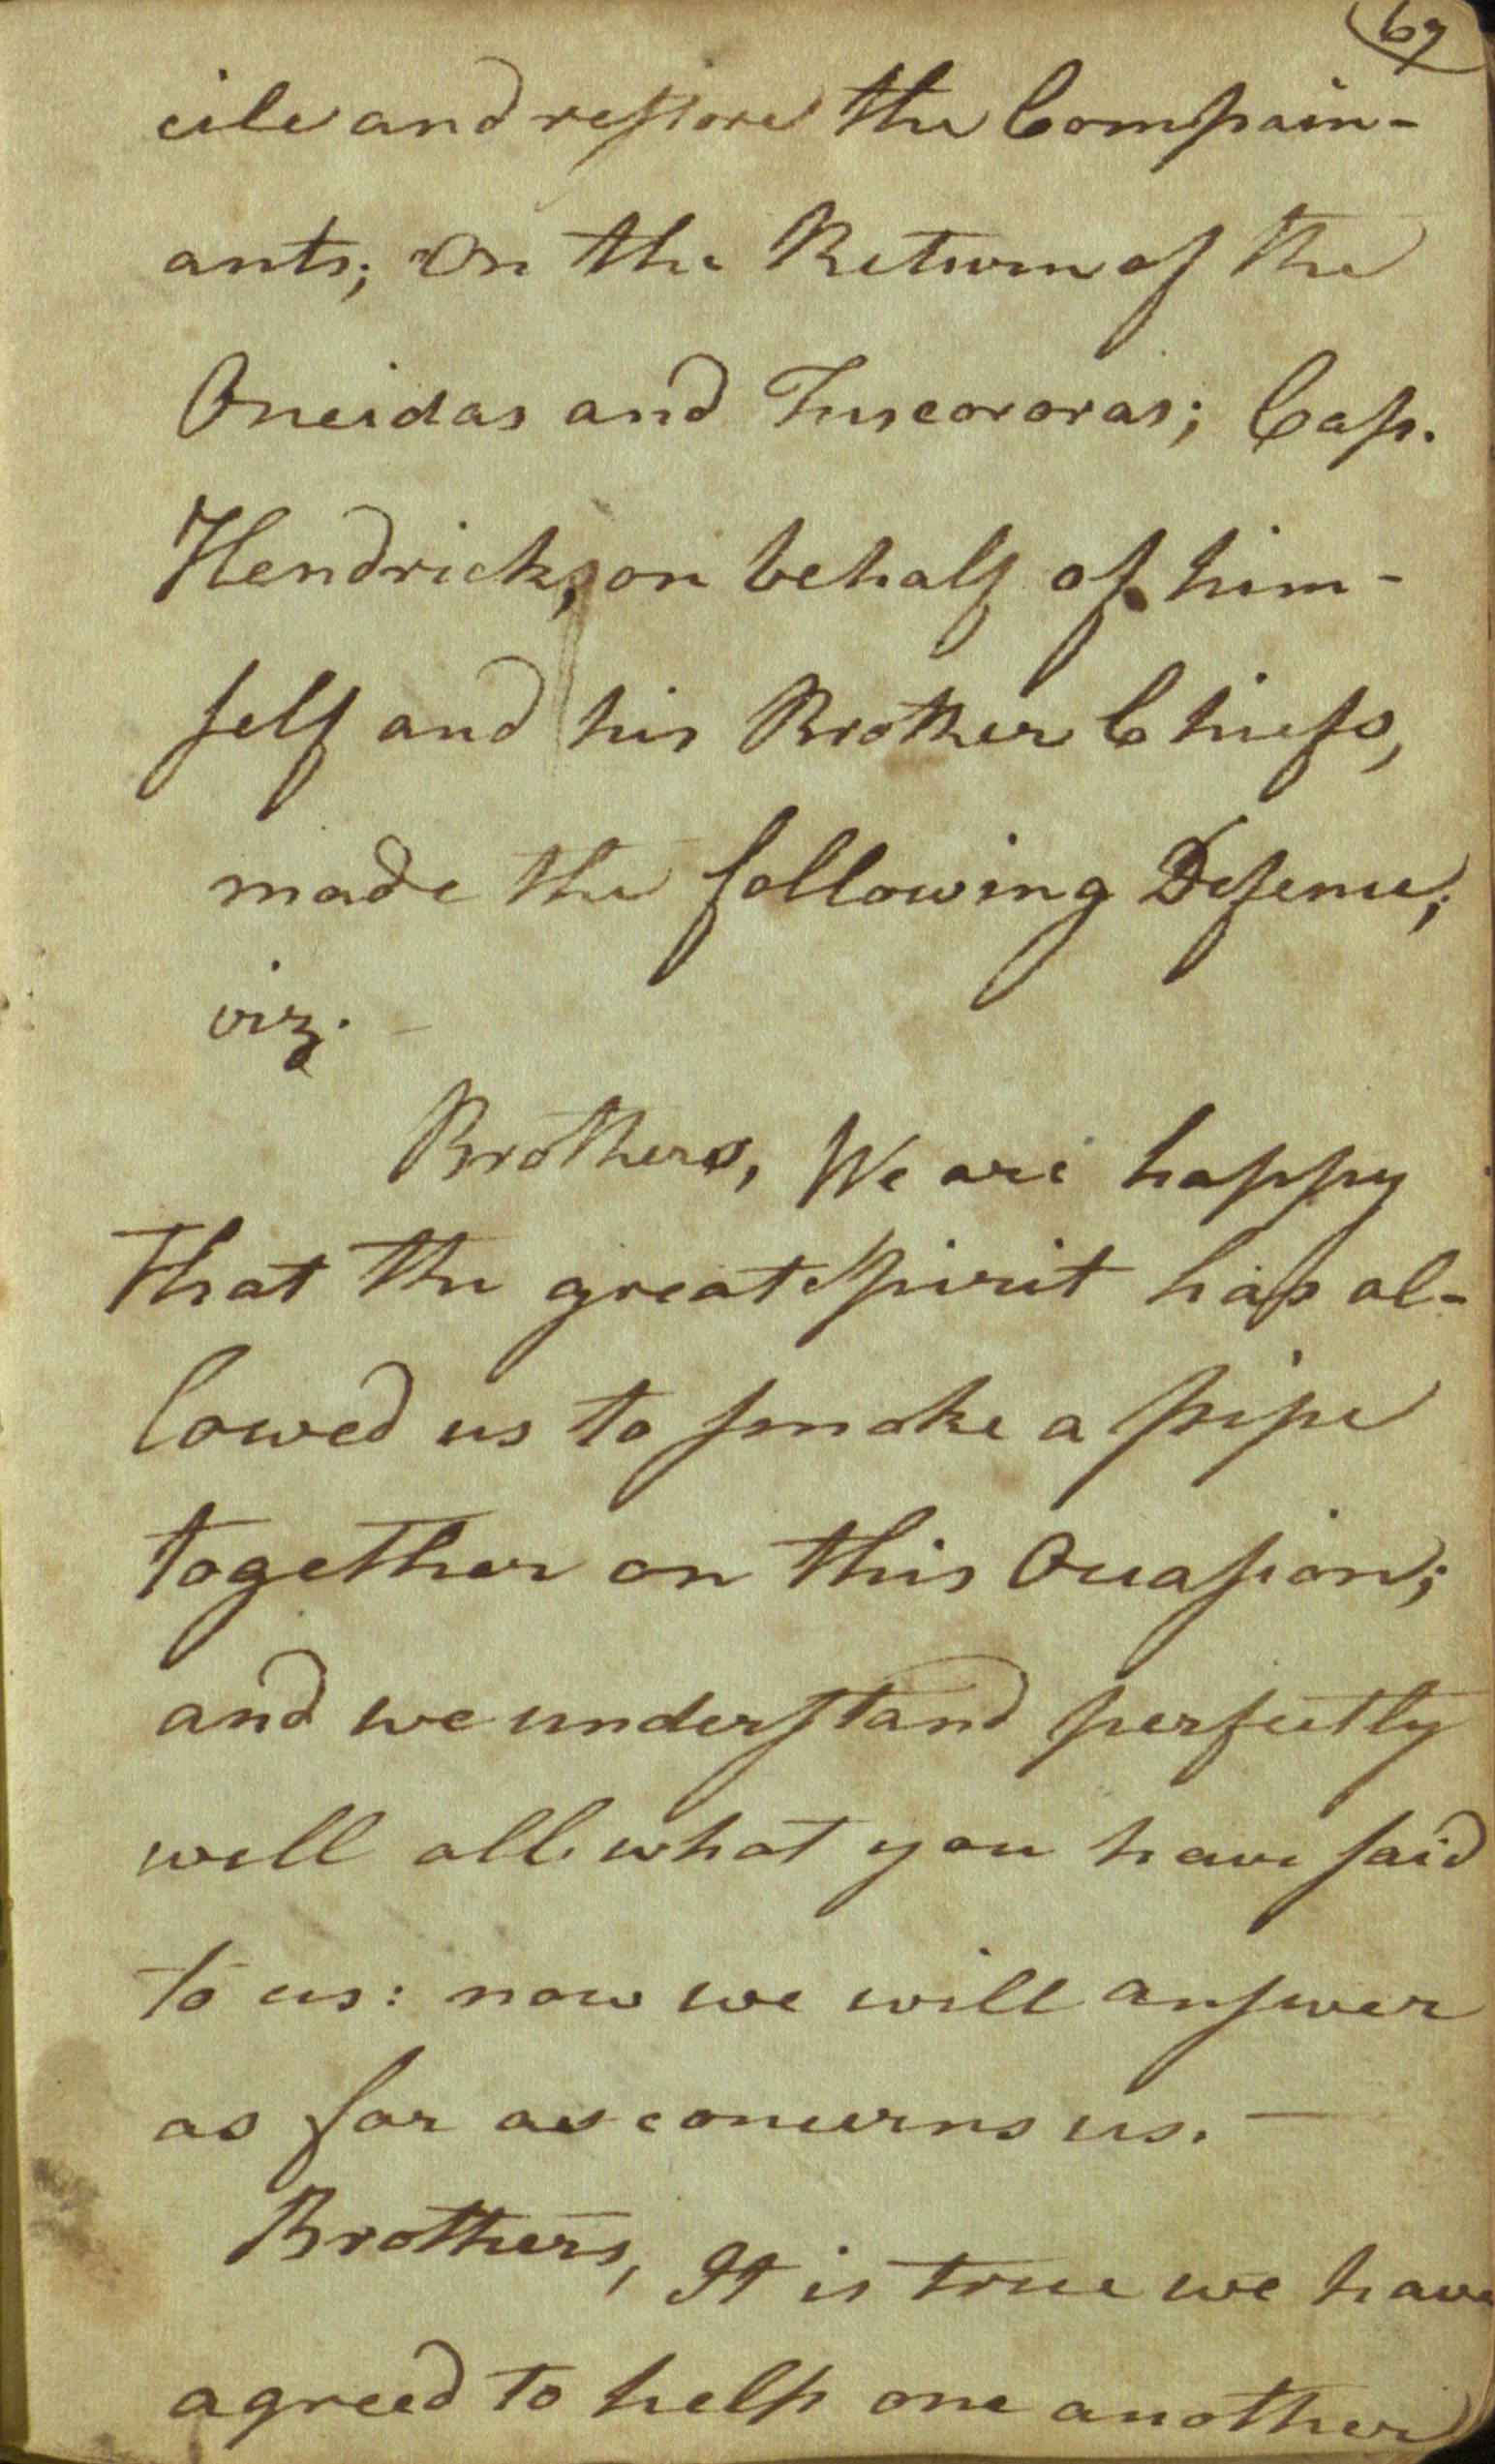 67
cile and restore the Compain-
ants; On the Return of the
Oneidas and Tuscororas; Cap.
Hendrick, on behalf of him-
self and his Brother Chiefs,
made the following Defence;
viz.
Brothers, We are happy
that the great Spirit has al-
lowed us to smoke a pipe
together on this Occasion;
and we understand perfectly
well all what you have said
to us: now we will answer
as far as concerns us. —
Brothers, It is true we have
agreed to help one another